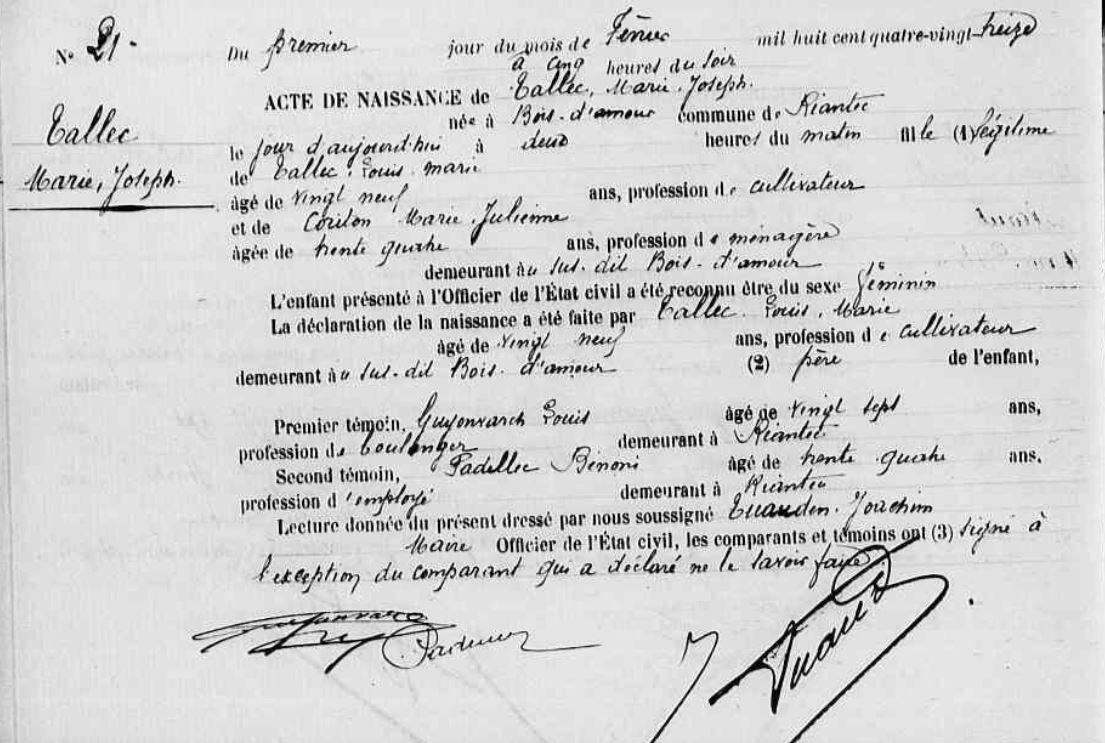 N° 21.
Du premier jour du mois de Février mil huit cent quatre-vingt-treize
à cinq heures du soir
ACTE DE NAISSANCE de Tallec, Marie-Joseph.
Tallec
Marie, Joseph.
née à Bois-d'amour commune de Riantec
le jour d'aujourd'hui à deux heures du matin fille (1) légitime
de Tallec, Louis-Marie
âgé de vingt neuf ans, profession de cultivateur
et de Marie-Julienne
âgée de trente quatre ans, profession de ménagère
demeurant au sus-dit Bois-d'amour
L'enfant présenté à l'Officier de l'État civil a été reconnu être du sexe féminin
La déclaration de la naissance a été faite par Tallec-Louis, Marie
âgé de vingt neuf ans, profession de cultivateur
demeurant au sus-dit Bois-d'amour (2) père de l'enfant,
Premier témoin, Guyonvarch Louis âgé de vingt sept ans,
profession de boulanger demeurant à Riantec
Second témoin, Padellec Bénoni âgé de trente quatre ans,
profession d'employé demeurant à Riantec
Lecture donnée du présent dressé par nous soussigné Joachim
Maire Officier de l'État civil, les comparants et témoins ont (3) signé à
l'exception du comparant qui a déclaré ne le savoir faire